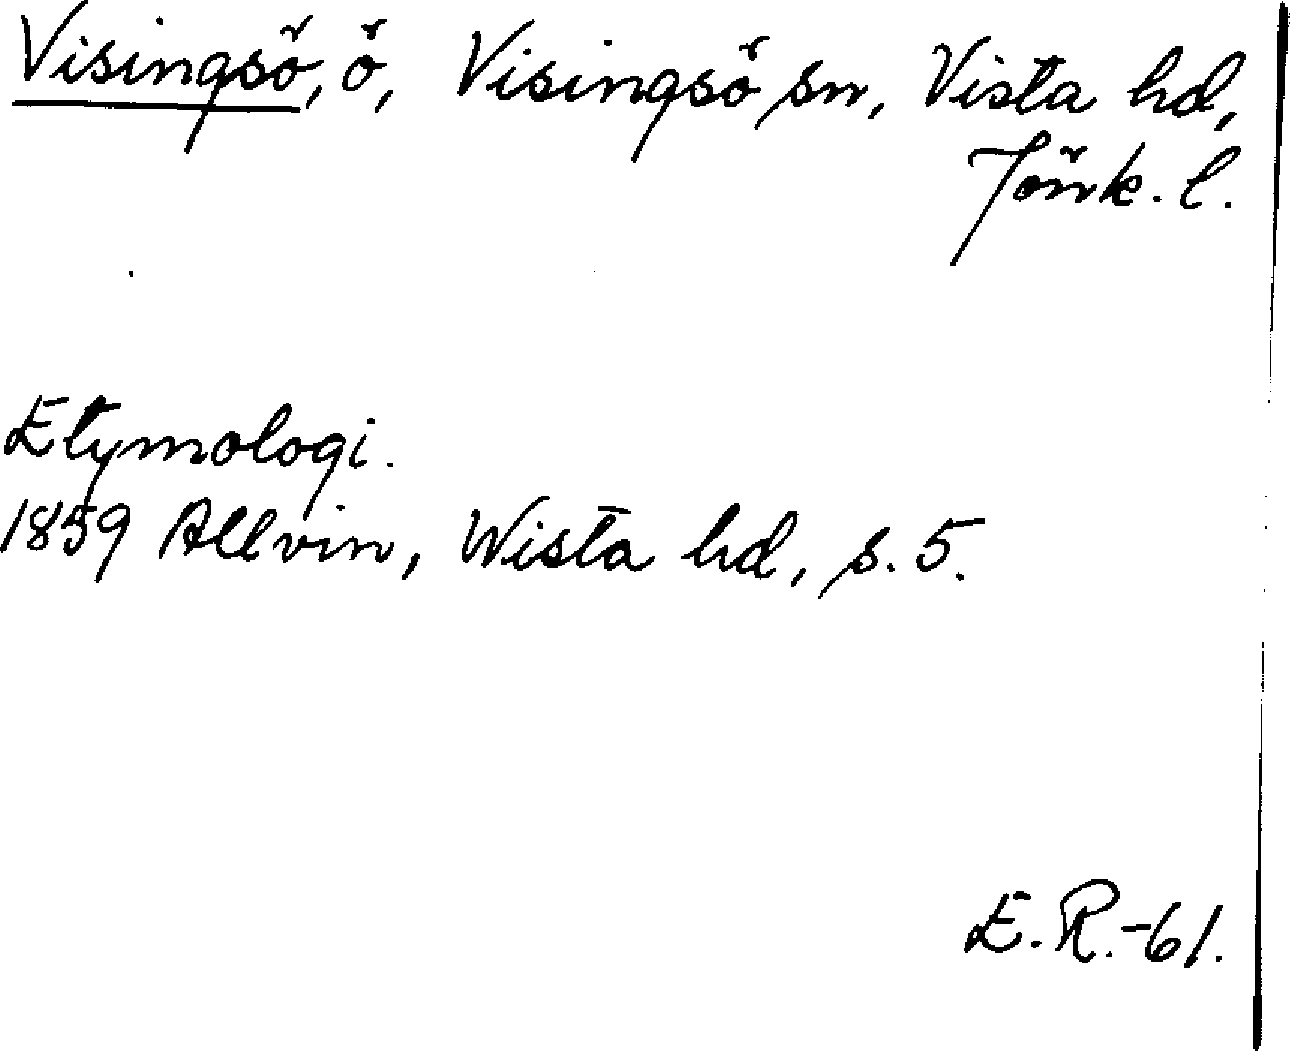 Visingsö, ö, Visingsö sn, Vista hd,
Jönk. l.
Etymologi.
1859 Allvin, Wista hd, s. 5.
E. R. -61.